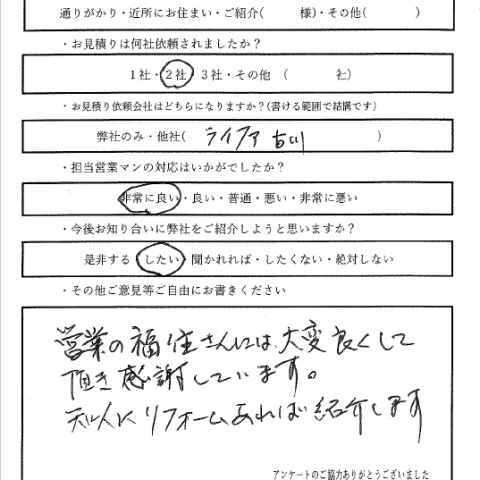 通りがかり・近所にお住まい・ご紹介(　　　様)・その他(　　　)
・お見積りは何社依頼されましたか？
1社・2社・3社・その他　(　　　社)
・お見積り依頼会社はどちらになりますか？(書ける範囲で結構です)
弊社のみ・他社(　ライファ 古川　)
・担当営業マンの対応はいかがでしたか？
非常に良い・良い・普通・悪い・非常に悪い
・今後お知り合いに弊社をご紹介しようと思いますか？
是非する・したい・聞かれれば・したくない・絶対しない
・その他ご意見等ご自由にお書きください
営業の福住さんには、大変良くして
頂き感謝しています。
知人にリフォームあれば紹介します
アンケートのご協力ありがとうございました